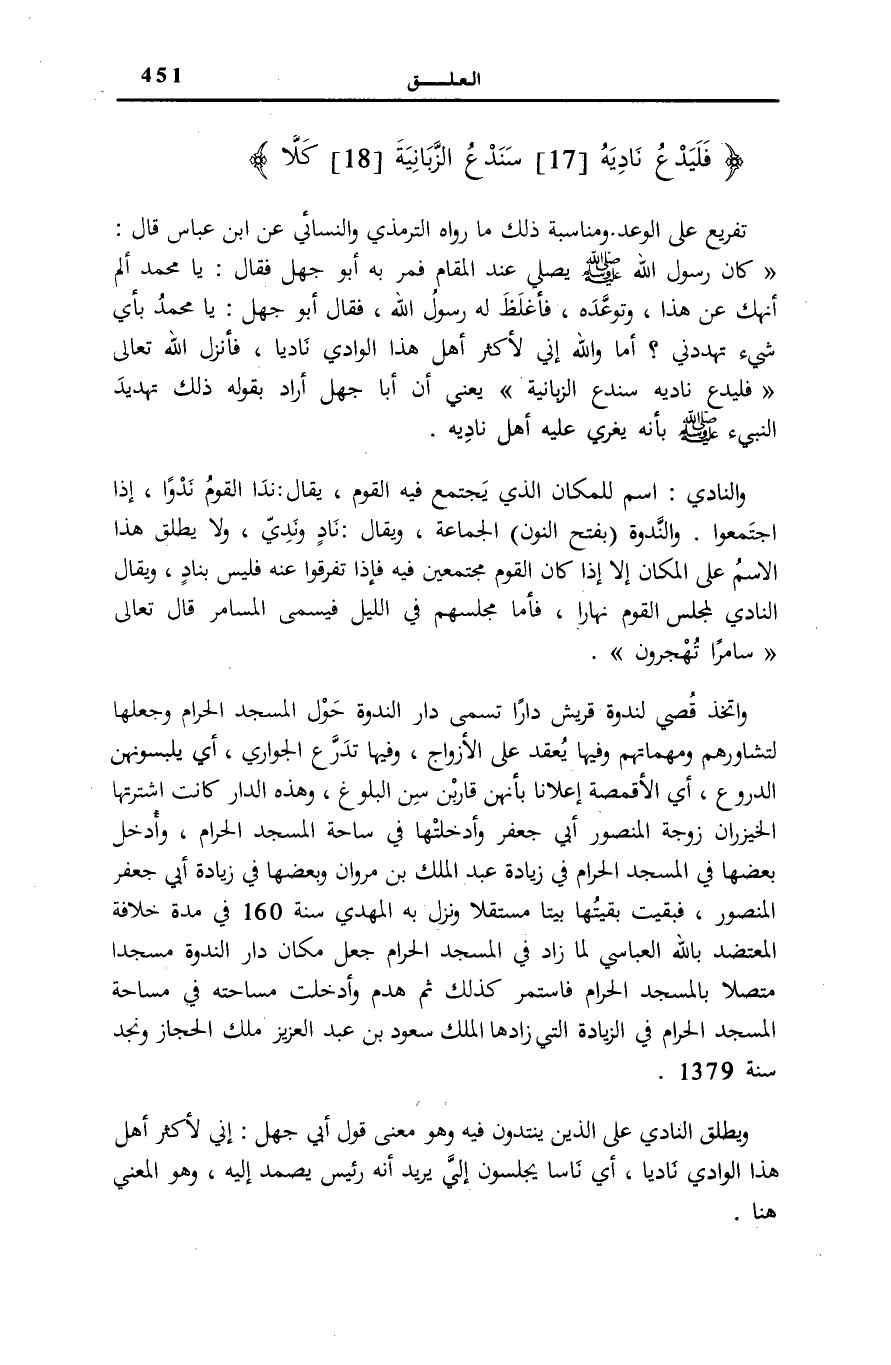 العلـــق 451
﴿ فَلْيَدْعُ نَادِيَهُ [17] سَنَدْعُ الزَّبَانِيَةَ [18] كَلَّا ﴾
تفريع على الوعد.ومناسبة ذلك ما رواه الترمذي والنسائي عن ابن عباس قال :
« كان رسول الله ﷺ يصلي عند المقام فمر به أبو جهل فقال : يا محمد ألم
أنهك عن هذا ، وتوعَّدَه ، فأغلَظَ له رسولُ الله ، فقال أبو جهل : يا محمدُ بأي
شيء تهددني ؟ أما والله إني لأكثر أهل هذا الوادي نَاديا ، فأنزل الله تعالى
« فليدع ناديه سندع الزبانية » يعني أن أبا جهل أراد بقوله ذلك تهديدَ
النبيء ﷺ بأنه يغري عليه أهل نادِيه .
والنادي : اسم للمكان الذي يَجتمع فيه القوم ، يقال:ندَا القومُ نَدْوًا ، إذا
اجتَمعوا . والنَّدوة (بفتح النون) الجماعة ، ويقال :نَادٍ ونَدِيّ ، ولا يطلق هذا
الاسمُ على المكان إلا إذا كان القوم مجتمعين فيه فإذا تفرقوا عنه فليس بنادٍ ، ويقال
النادي لمجلس القوم نهارا ، فأما مجلسهم في الليل فيسمى المسامر قال تعالى
« سامرًا تُهْجرون » .
واتخذ قُصي لندوة قريش دارًا تسمى دار الندوة حَوْل المسجد الحرام وجعلها
لتشاورهم ومهماتهم وفيها يُعقد على الأزواج ، وفيها تدَرَّع الجواري ، أي يلبسونهن
الدروع ، أي الأقمصة إعلانا بأنهن قاربْن سِن البلوغ ، وهذه الدار كانت اشترتها
الخيزران زوجة المنصور أبي جعفر وأدخلتْها في ساحة المسجد الحرام ، وأُدخل
بعضها في المسجد الحرام في زيادة عبد الملك بن مروان وبعضها في زيادة أبي جعفر
المنصور ، فبقيت بقيتُها بيتا مستقلا ونزل به المهدي سنة 160 في مدة خلافة
المعتضد بالله العباسي لما زاد في المسجد الحرام جعل مكان دار الندوة مسجدا
متصلا بالمسجد الحرام فاستمر كذلك ثم هدم وأدخلت مساحته في مساحة
المسجد الحرام في الزيادة التي زادها الملك سعود بن عبد العزيز ملك الحجاز ونجد
سنة 1379 .
ويطلق النادي على الذين ينتدون فيه وهو معنى قول أبي جهل : إني لأكثر أهل
هذا الوادي نَاديا ، أي نَاسا يجلسون إليَّ يريد أنه رئيس يصمد إليه ، وهو المعني
هنا .